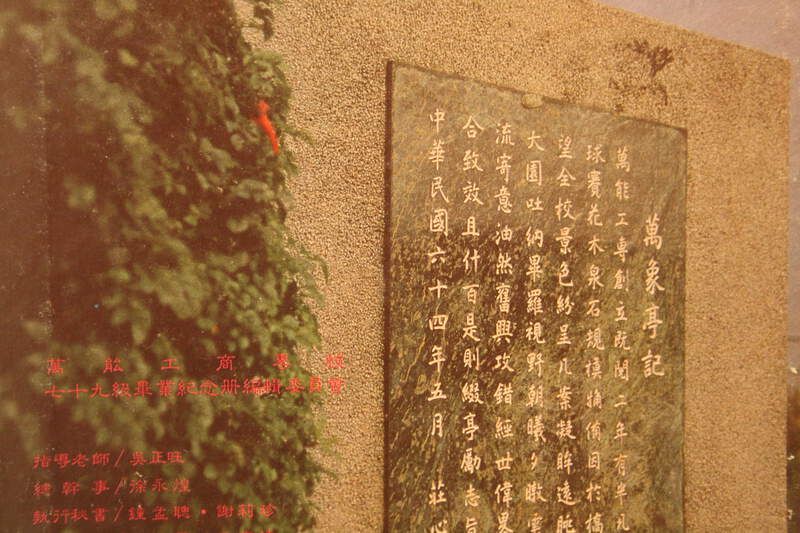 萬象亭記
萬能工專創立既閱二年有半凡
球賽花木泉石規模犕備因於
望全校景色紛呈几案凝眸遠眺
大園吐納畢羅視野朝曦夕暾雲
流寄意油然奮興攻錯經世偉畧
合致效且什百是則綴亭勵志旨
中華民國六十四年五月 莊心
萬能工商專校
七十九級畢業紀念冊編輯委員會
指導老師/吳正旺
總幹事/徐永煌
執行秘書/鐘孟聰・謝莉珍